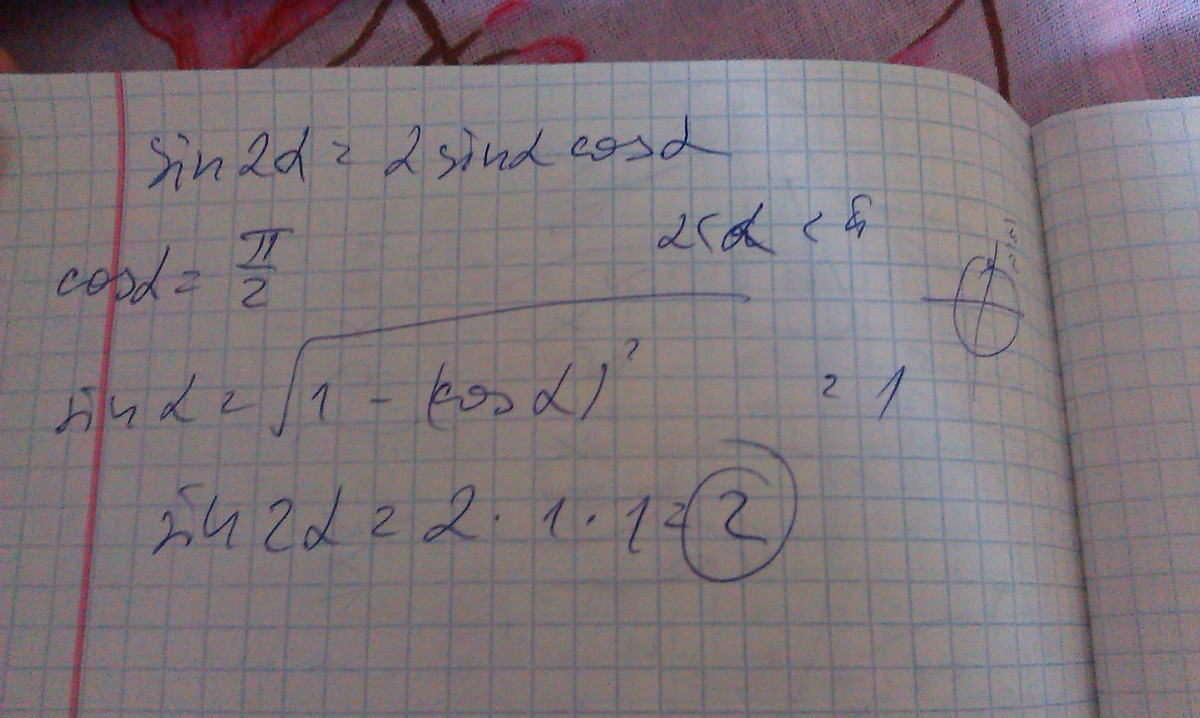 sin 2α = 2 sinα cosα
cosα = π/2
2 < α < 4
sin α = √1 - (cos α)² = 1
sin 2α = 2 · 1 · 1 = 2